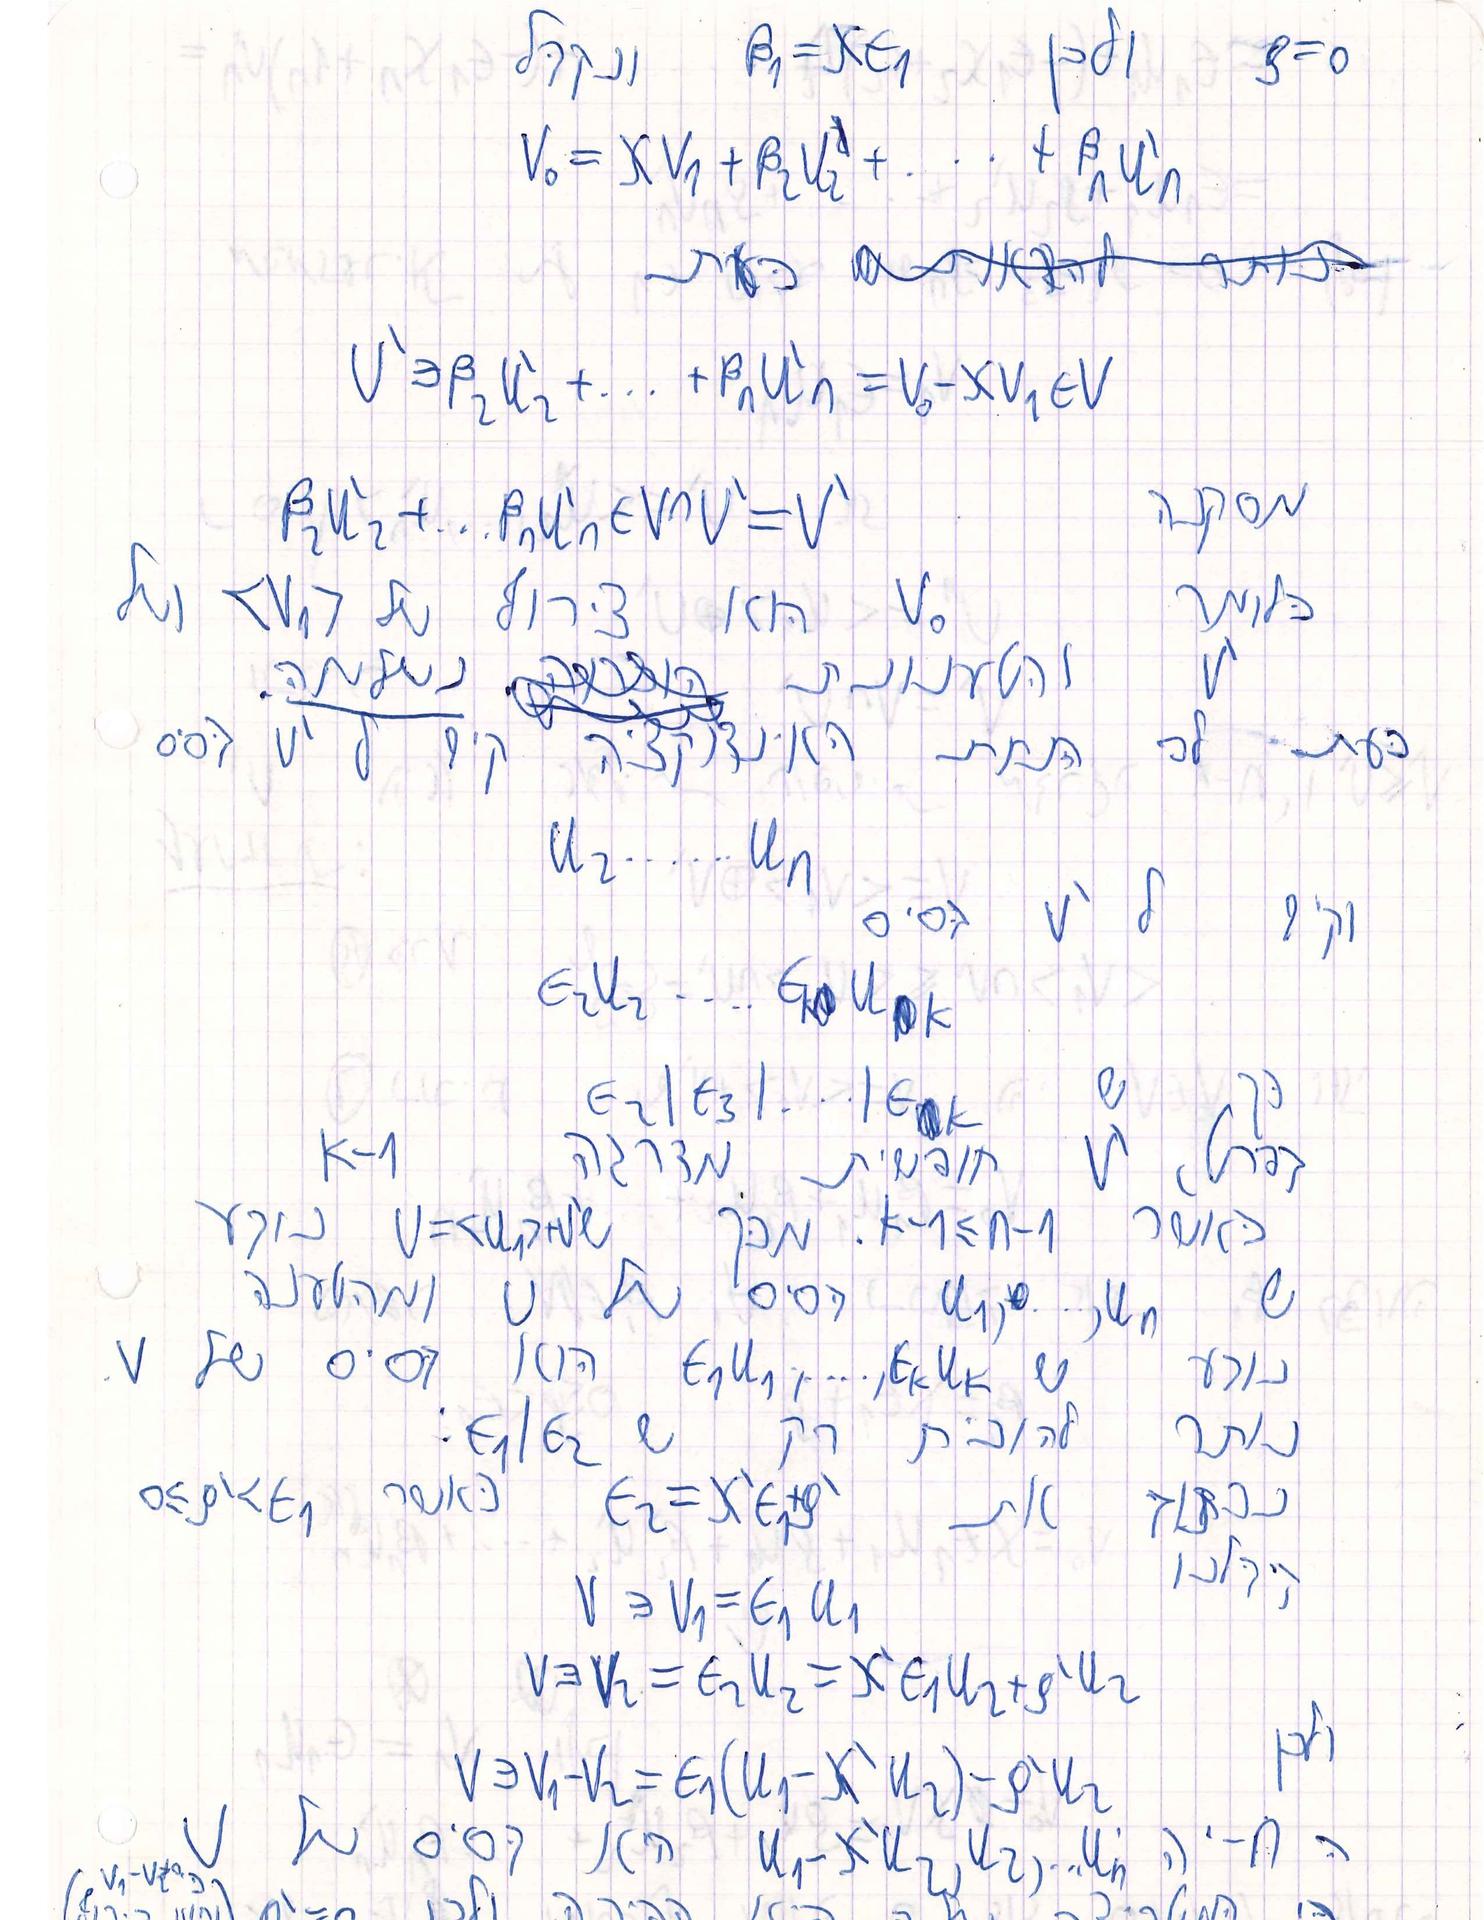 ρ=0 ולכן β₁=γϵ₁ ונקבל
v₀=γv₁+β₂u'₂+...+βₙu'ₙ
כעת
U'∋β₂u'₂+...+βₙu'ₙ=v₀-γv₁∈V
מסקנה β₂u'₂+...βₙu'ₙ∈V∩U'=V'
כלומר v₀ הוא צירוף של <v₁> ושל
V' והטענונת נשלמה.
כעת לפי הנחת האינדוקציה קיים ל U' בסיס
u₂......uₙ
וקיים ל V' בסיס
ϵ₂u₂....ϵₖuₖ
כך ש ϵ₂|ϵ₃|....|ϵₖ
בפרט, V' חופשית מדרגה k-1
כאשר k-1≤n-1. מכך ש U=<u₁>+U' נובע
ש u₁,....,uₙ בסיס של U ומהטענה
נובע ש ϵ₁u₁,....,ϵₖuₖ הוא בסיס של V.
נותר להוכיח רק ש ϵ₁|ϵ₂:
נכתוב את ϵ₂=γ'ϵ₁+ρ' כאשר 0≤ρ'<ϵ₁
קיבלנו
V∋v₁=ϵ₁u₁
V∋v₂=ϵ₂u₂=γ'ϵ₁u₂+ρ'u₂
ולכן
V∋v₁-v₂=ϵ₁(u₁-γ'u₂)-ρ'u₂
ה n-יה u₁-γ'u₂,u₂,...uₙ היא בסיס של U